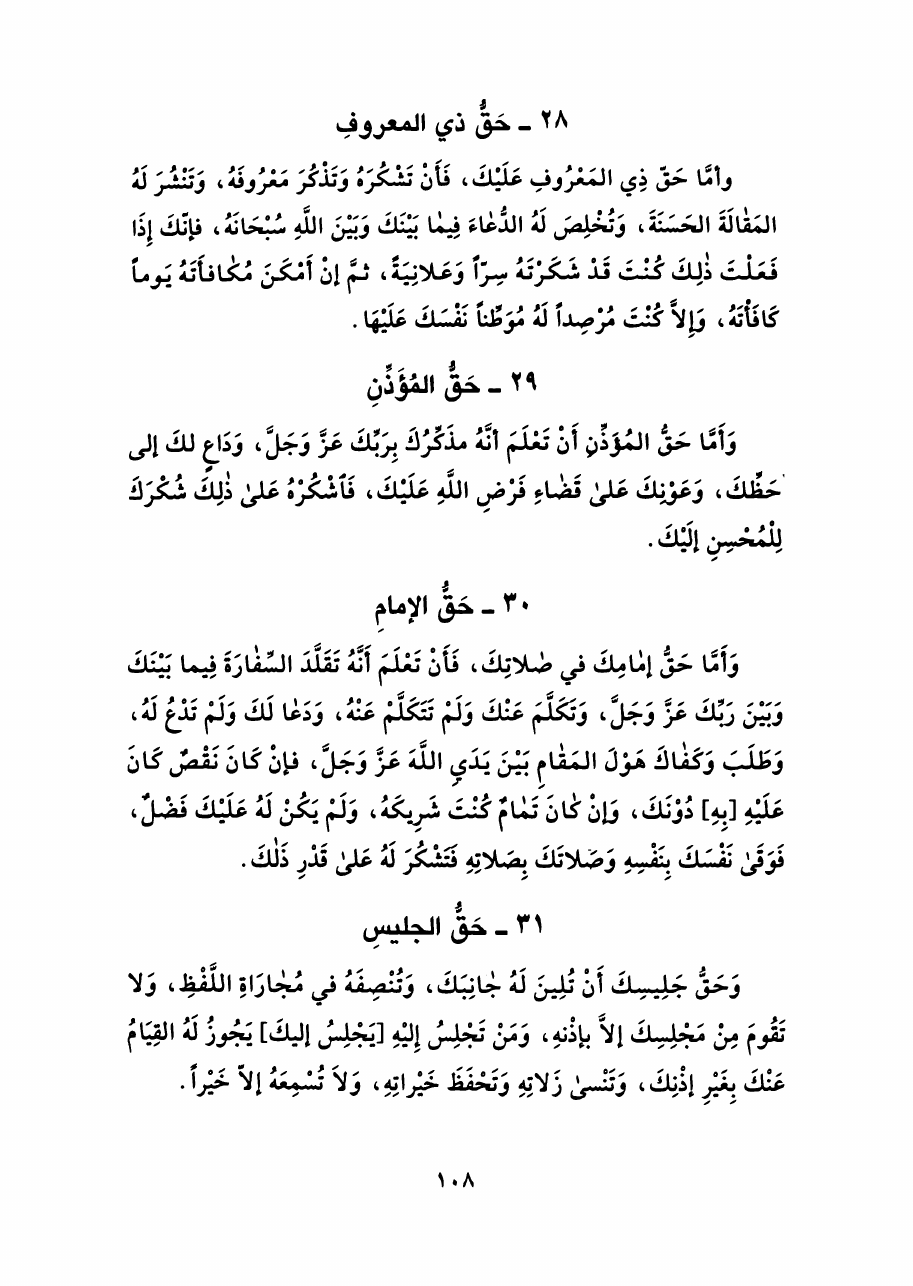 ٢٨ ـ حَقُّ ذي المعروفِ
وأمَّا حَقّ ذِي المَعْرُوفِ عَلَيْكَ، فَأَنْ تَشْكُرَهُ وَتَذْكُرَ مَعْرُوفَهُ، وَتَنْشُرَ لَهُ
المَقٰالَةَ الحَسَنَةَ، وَتُخْلِصَ لَهُ الدُّعٰاءَ فِيمٰا بَيْنَكَ وَبَيْنَ اللَّهِ سُبْحَانَهُ، فإنّكَ إِذَا
فَعَلْتَ ذٰلِكَ كُنْتَ قَدْ شَكَرْتَهُ سِرّاً وَعَلانِيَةً، ثمَّ إنْ أَمْكَنَ مُكٰافأَتَهُ يَوماً
كَافَأْتَهُ، وَإِلاَّ كُنْتَ مُرْصِداً لَهُ مُوَطِّناً نَفْسَكَ عَلَيْهَا.
٢٩ ـ حَقُّ المُؤَذِّنِ
وَأَمَّا حَقُّ المُؤَذِّنِ أَنْ تَعْلَمَ أنَّهُ مذَكِّرُكَ بِرَبِّكَ عَزَّ وَجَلَّ، وَدَاعٍ لكَ إلى
حَظِّكَ، وَعَوْنِكَ عَلىٰ قَضٰاءِ فَرْضِ اللَّهِ عَلَيْكَ، فَٱشْكُرْهُ عَلىٰ ذٰلِكَ شُكْرَكَ
لِلْمُحْسِنِ إلَيْكَ.
٣٠ ـ حَقُّ الإمامِ
وَأَمَّا حَقُّ إمٰامِكَ في صٰلاتِكَ، فَأَنْ تَعْلَمَ أَنَّهُ تَقَلَّدَ السِّفٰارَةَ فِيما بَيْنَكَ
وَبَيْنَ رَبِّكَ عَزَّ وَجَلَّ، وَتَكَلَّمَ عَنْكَ وَلَمْ تَتَكَلَّمْ عَنْهُ، وَدَعٰا لَكَ وَلَمْ تَدْعُ لَهُ،
وَطَلَبَ وَكَفٰاكَ هَوْلَ المَقٰامِ بَيْنَ يَدَيِ اللَّهَ عَزَّ وَجَلَّ، فإنْ كَانَ نَقْصٌ كَانَ
عَلَيْهِ [بِهِ] دُوْنَكَ، وَإنْ كٰانَ تَمٰامٌ كُنْتَ شَرِيكَهُ، وَلَمْ يَكُنْ لَهُ عَلَيْكَ فَضْلٌ،
فَوَقَىٰ نَفْسَكَ بِنَفْسِهِ وَصَلاتَكَ بِصَلاتِهِ فَتَشْكُرَ لَهُ عَلىٰ قَدْرِ ذَلٰكَ.
٣١ ـ حَقُّ الجليسِ
وَحَقُّ جَلِيسِكَ أَنْ تُلِينَ لَهُ جٰانِبَكَ، وَتُنْصِفَهُ في مُجٰارَاةِ اللَّفْظِ، وَلا
تَقُومَ مِنْ مَجْلِسِكَ إلاَّ بإذْنهِ، وَمَنْ تَجْلِسُ إِلَيْهِ [يَجْلِسُ إليكَ] يَجُوزُ لَهُ القِيَامُ
عَنْكَ بِغَيْرِ إذْنِكَ، وَتَنْسىٰ زَلاتِهِ وَتَحْفَظَ خَيْراتِهِ، وَلاَ تُسْمِعَهُ إلاّ خَيْراً.
١٠٨